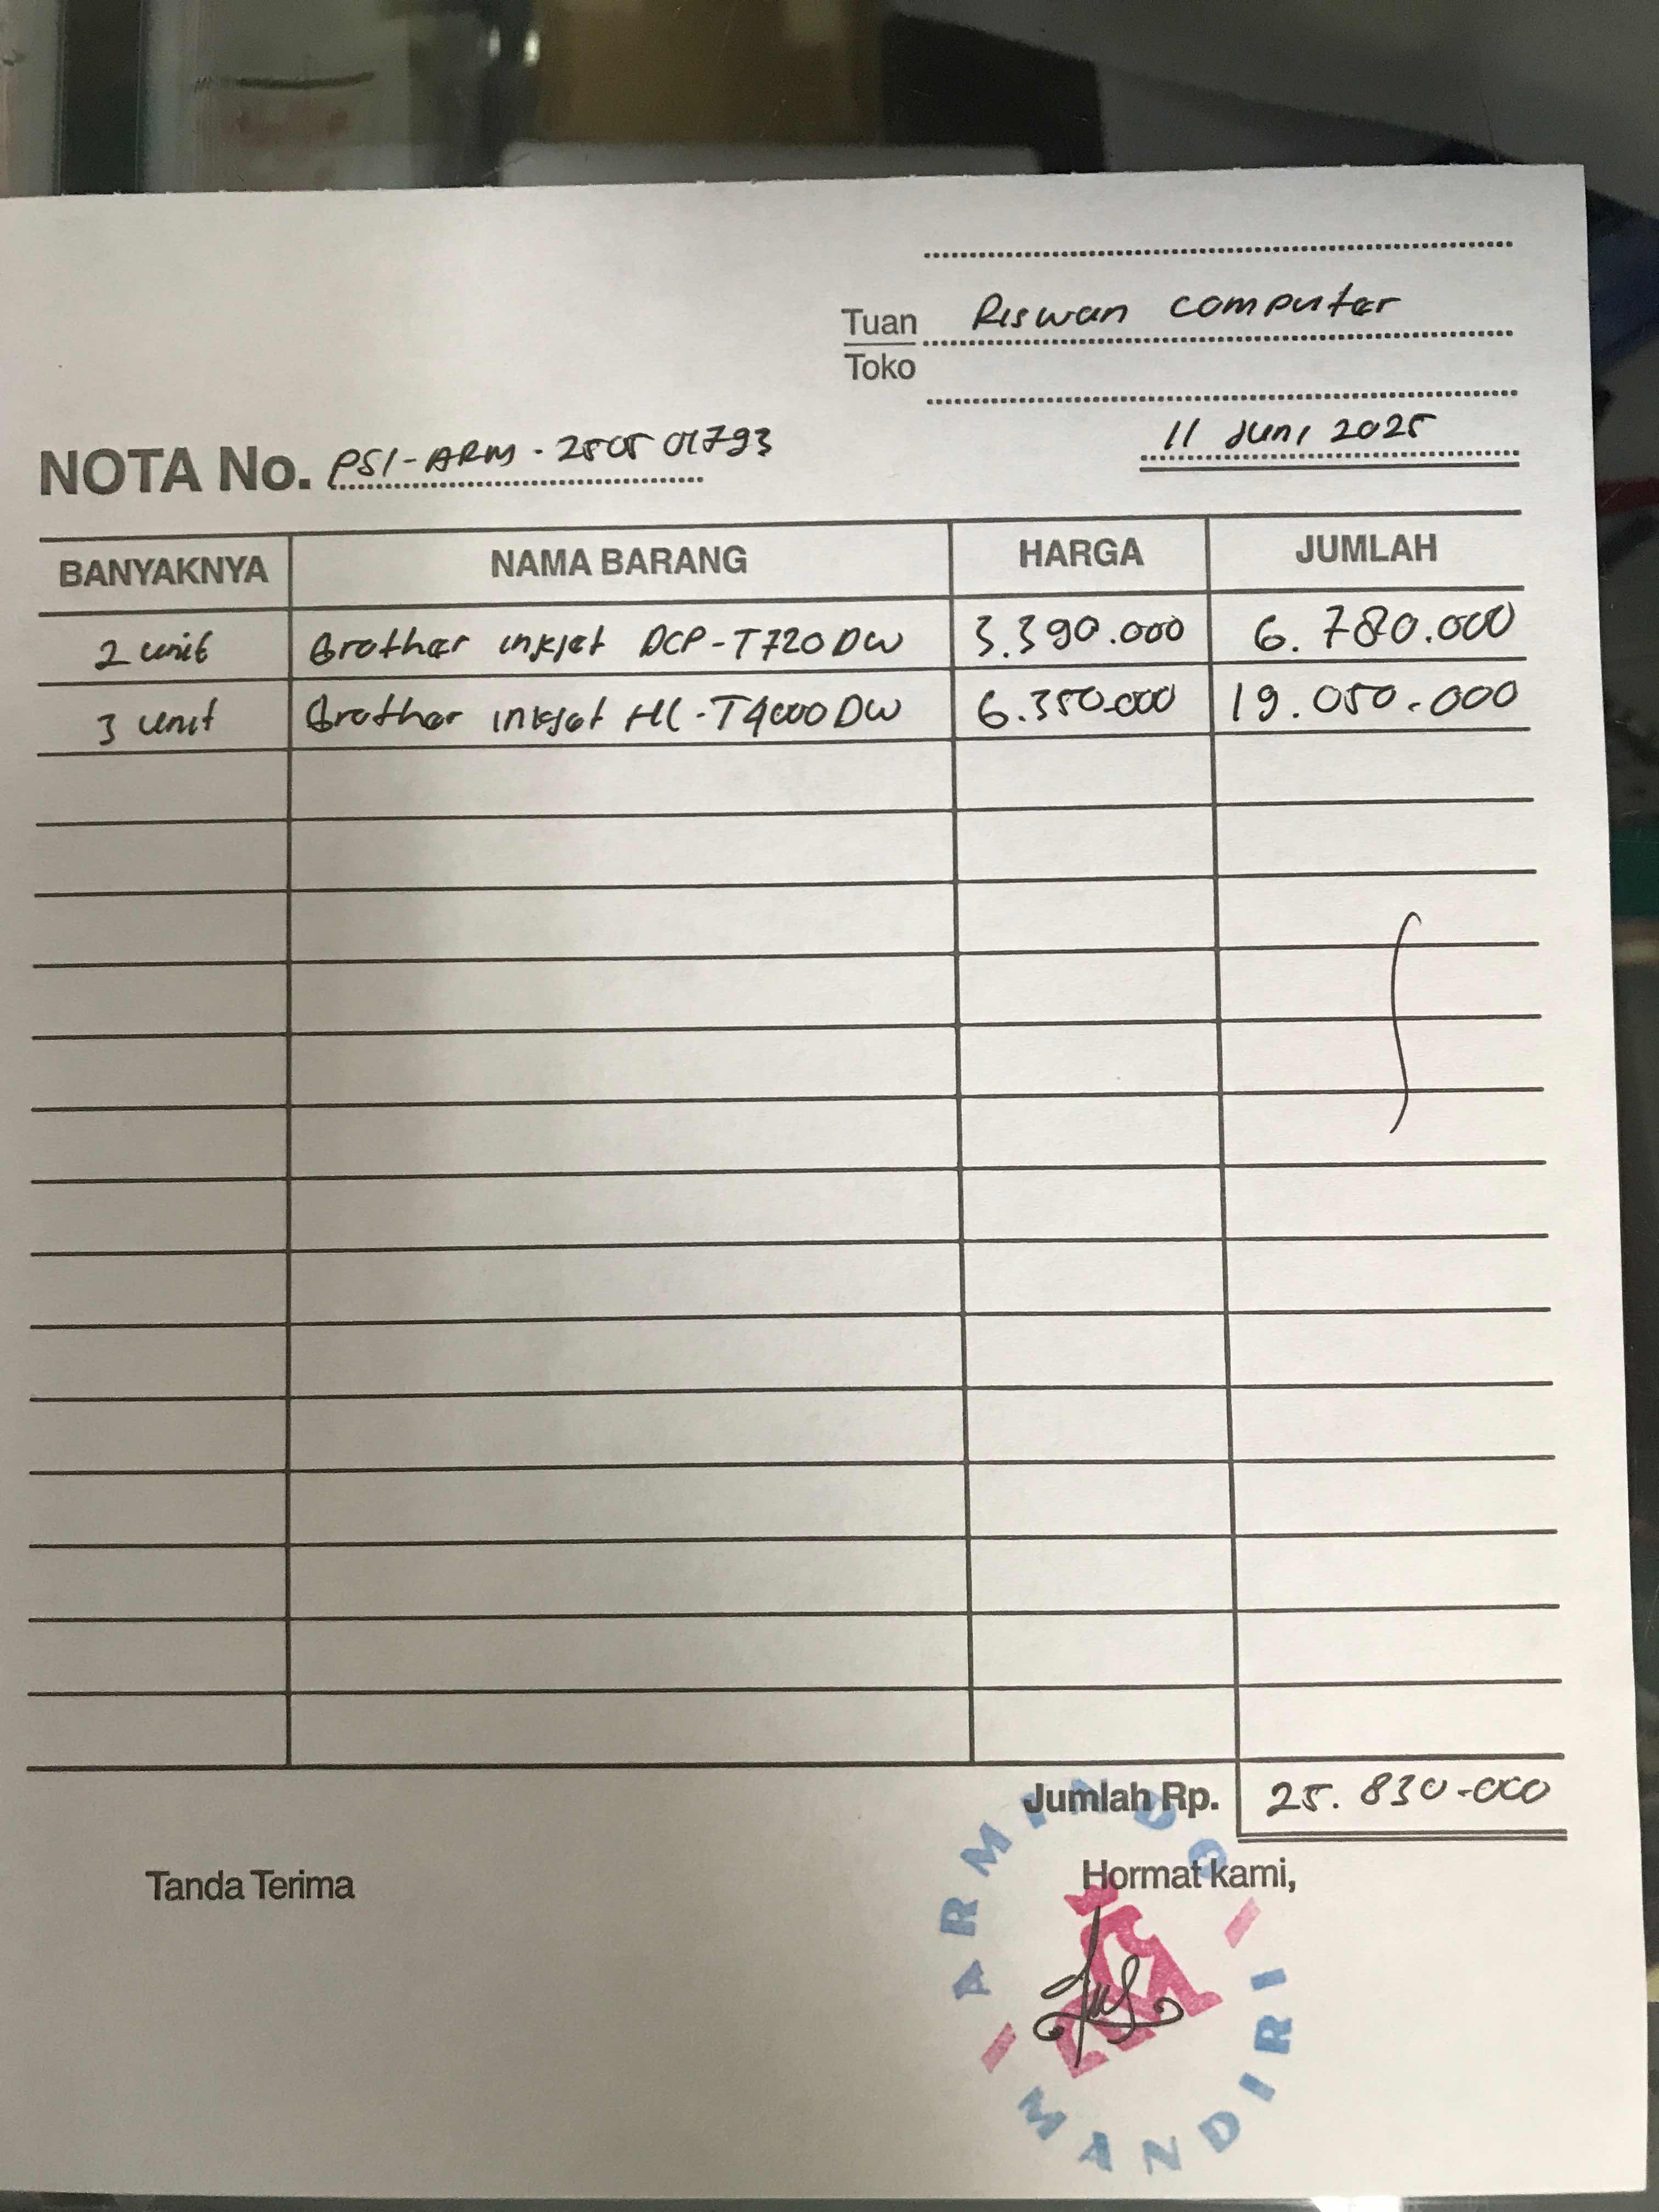 Tuan Riswan computer
Toko
11 Juni 2025
NOTA No. PSI-ARM-250501793
BANYAKNYA NAMA BARANG HARGA JUMLAH
2 unit Brother inkjet DCP-T720DW 3.390.000 6.780.000
3 unit Brother inkjet HL-T4000DW 6.350.000 19.050.000
Jumlah Rp. 25.830.000
Tanda Terima Hormat kami,
ARMINDO
MANDIRI